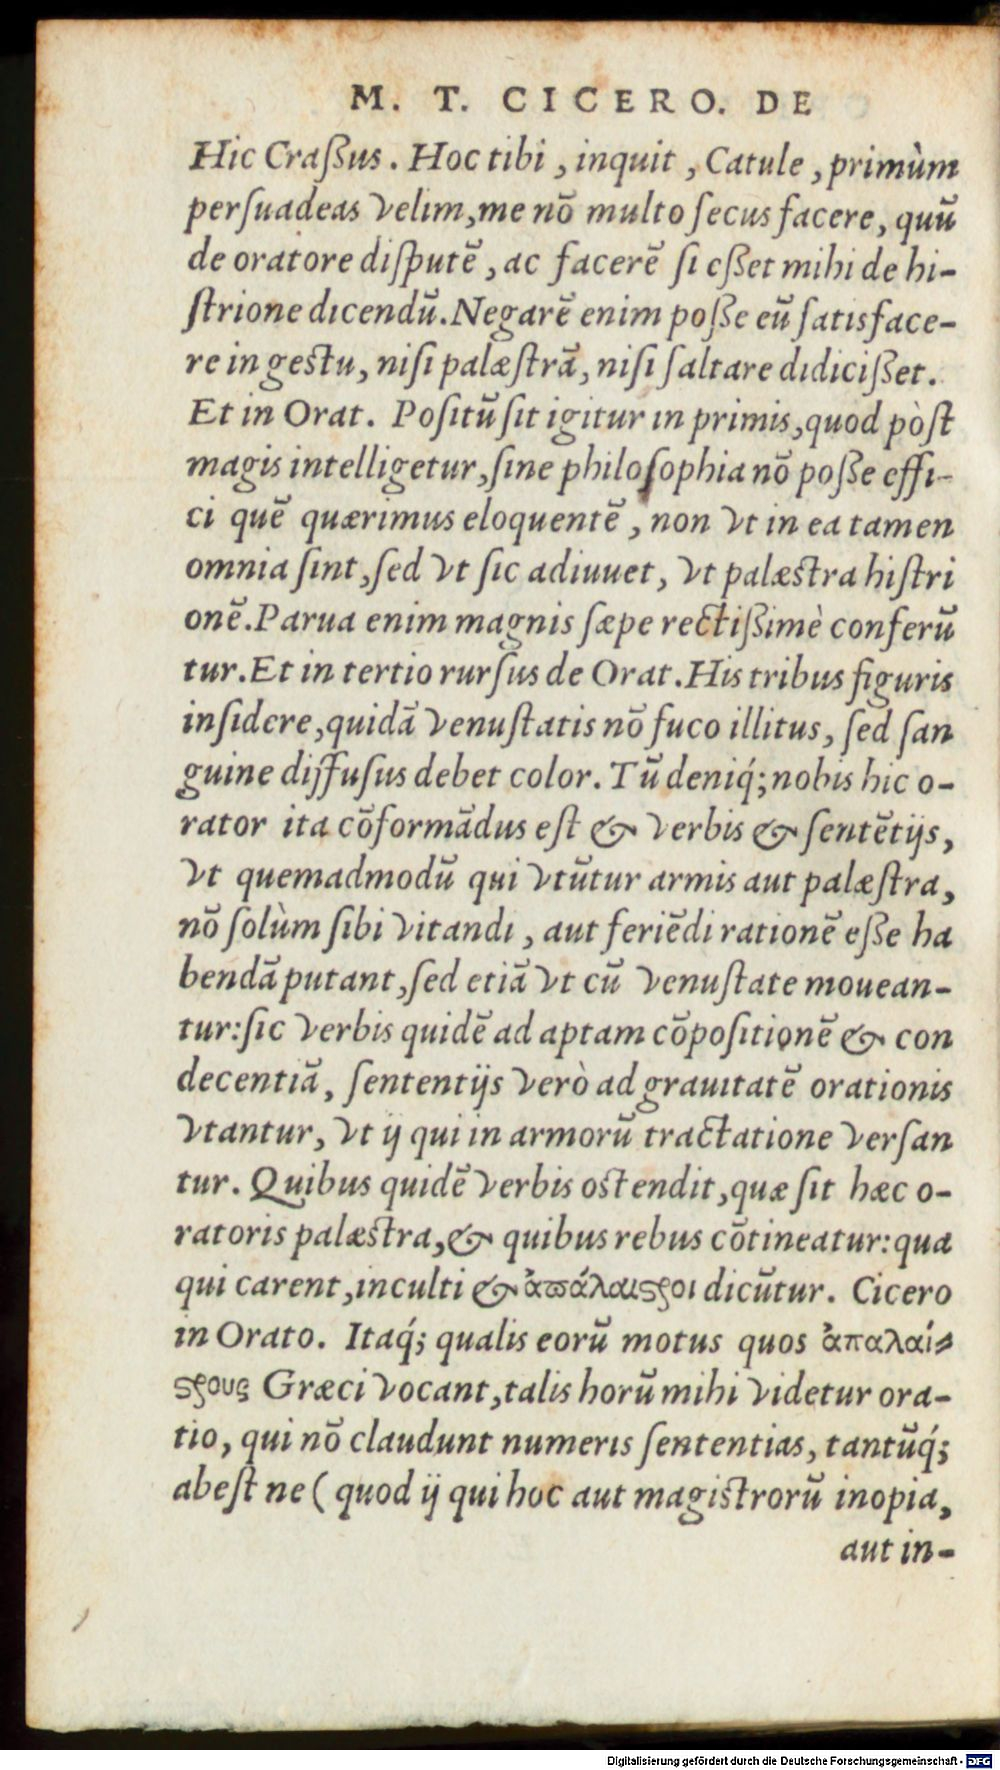 M. T. CICERO. DE
Hic Craßus. Hoc tibi, inquit, Catule, primùm
perſuadeas velim, me nō multo ſecus facere, quū
de oratore diſputē, ac facerē ſi eßet mihi de hi-
ſtrione dicendū. Negarē enim poße eū ſatisface-
re in geſtu, niſi palæſtrā, niſi ſaltare didicißet.
Et in Orat. Poſitū ſit igitur in primis, quod pòſt
magis intelligetur, ſine philoſophia nō poße effi-
ci quē quærimus eloquentē, non vt in ea tamen
omnia ſint, ſed vt ſic adiuuet, vt palæſtra hiſtri
onē. Parua enim magnis ſæpe rectißimè conferū
tur. Et in tertio rurſus de Orat. His tribus figuris
inſidere, quidā venuſtatis nō fuco illitus, ſed ſan
guine diffuſus debet color. Tū deniq́; nobis hic o-
rator ita cōformādus eſt & verbis & ſentētijs,
vt quemadmodū qui vtūtur armis aut palæſtra,
nō ſolùm ſibi vitandi, aut feriēdi rationē eße ha
bendā putant, ſed etiā vt cū venuſtate mouean-
tur: ſic verbis quidē ad aptam cōpoſitionē & con
decentiā, ſententijs verò ad grauitatē orationis
vtantur, vt ij qui in armorū tractatione verſan
tur. Quibus quidē verbis oſtendit, quæ ſit hæc o-
ratoris palæſtra, & quibus rebus cōtineatur: qua
qui carent, inculti & ἀπάλαιϛροι dicūtur. Cicero
in Orato. Itaq́; qualis eorū motus quos ἀπαλαί-
ϛρους Græci vocant, talis horū mihi videtur ora-
tio, qui nō claudunt numeris ſententias, tantūq́;
abeſt ne (quod ij qui hoc aut magiſtrorū inopia,
aut in-
Digitalisierung gefördert durch die Deutsche Forschungsgemeinschaft - DFG